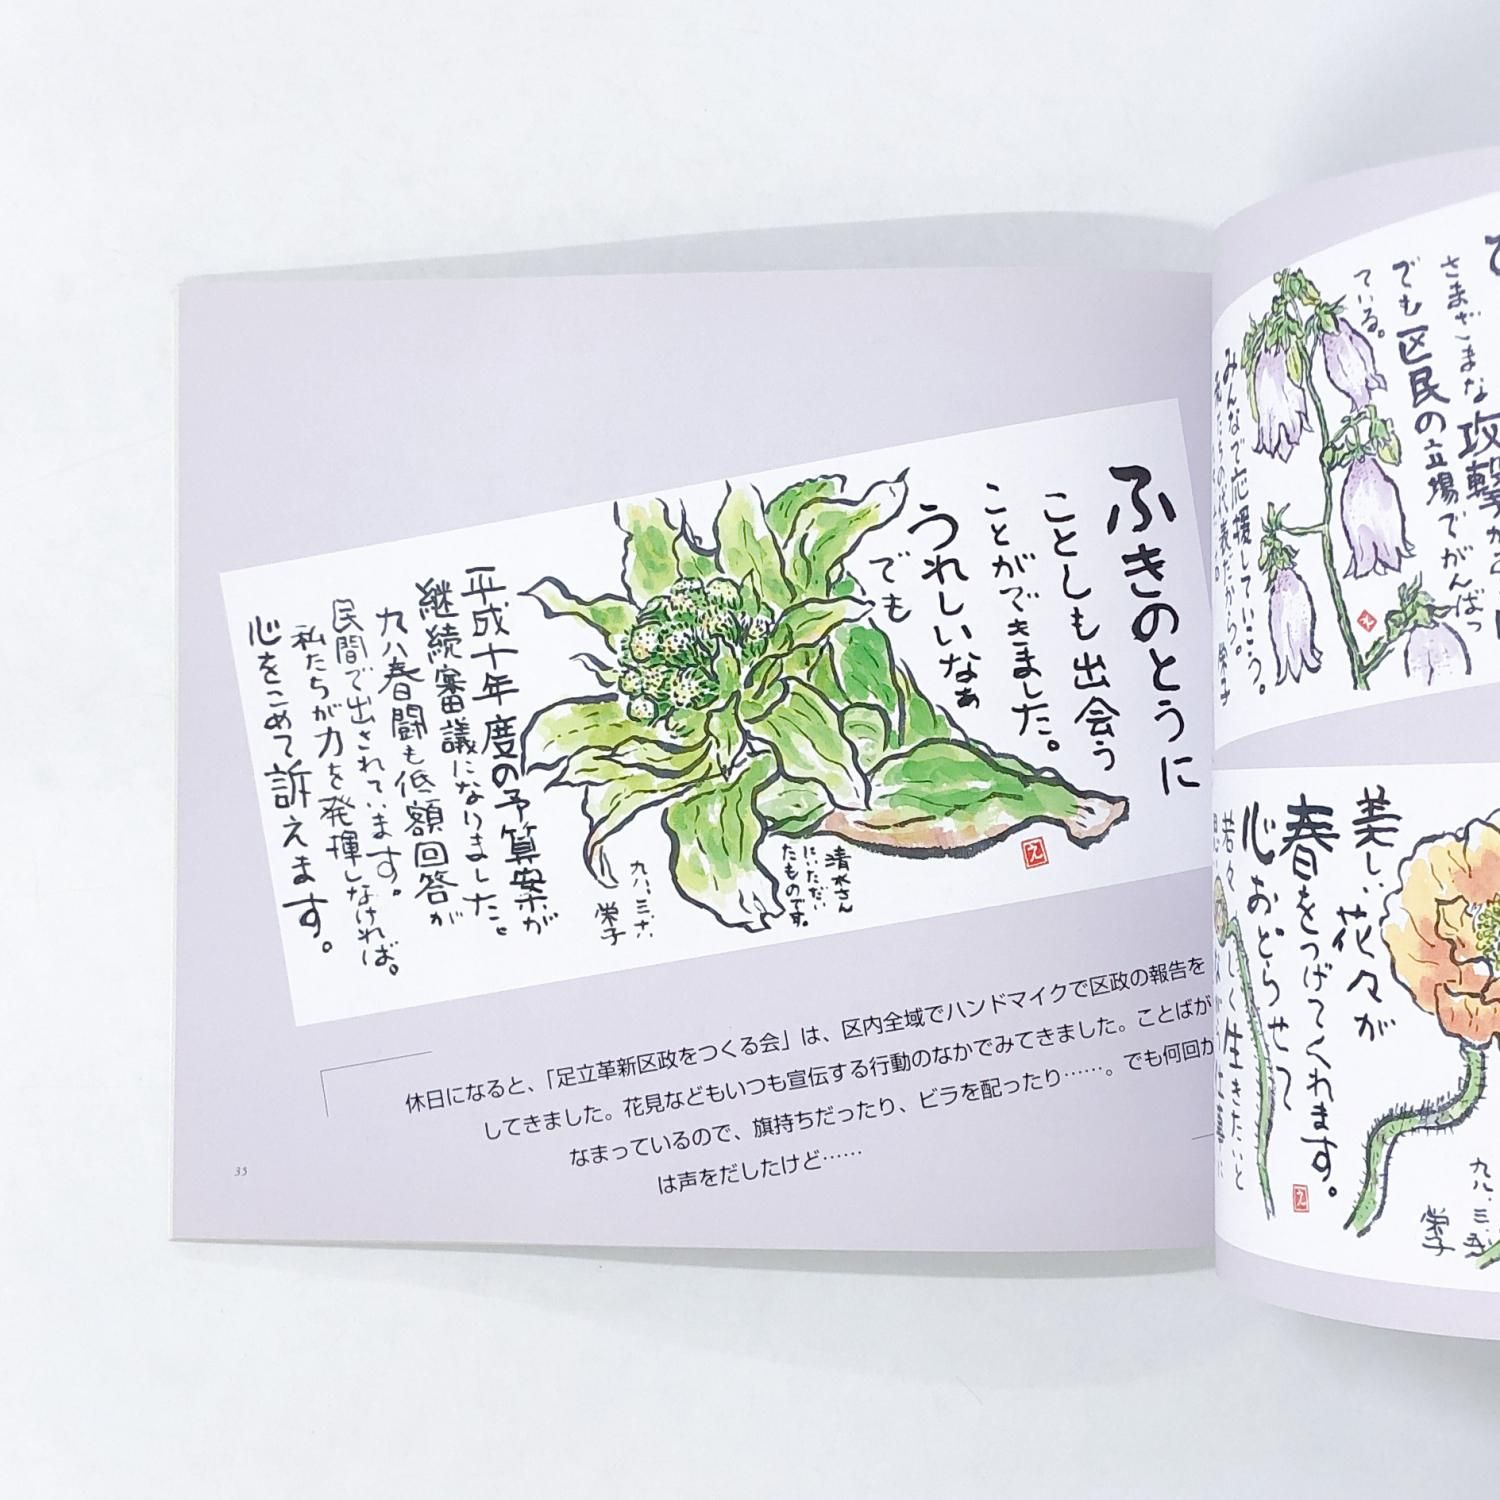 ふきのとうに
ことしも出会う
ことができました。
うれしいなぁ
でも
清水さん
にいただい
たものです。
九八、三、十六
栄子
え
平成十年度の予算案が
継続審議になりました。
九八春闘も低額回答が
民間で出されています。
私たちが力を発揮しなければ。
心をこめて訴えます。
休日になると、「足立革新区政をつくる会」は、区内全域でハンドマイクで区政の報告を
してきました。花見などもいつも宣伝する行動のなかでみてきました。ことばが
なまっているので、旗持ちだったり、ビラを配ったり……。でも何回か
は声をだしたけど……
35
さまざまな攻撃が
でも区民の立場でがんばっ
ている。
みんなで応援していこう。
私たちの代表だから。
栄子
美しい花々が
春をつげてくれます。
心おどらせて
若々しく生きたいと
え
九八、三、
栄子